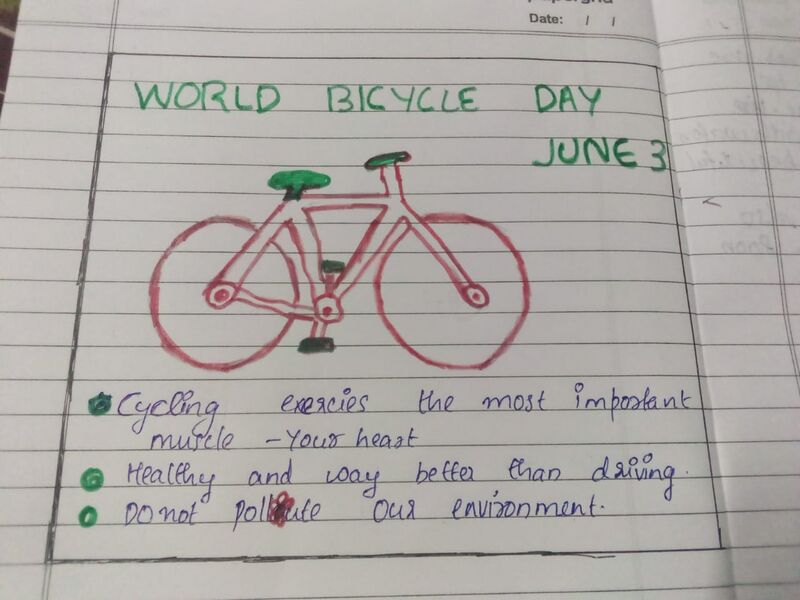 Date: / /
WORLD BICYCLE DAY
JUNE 3
Cycling exercies the most important
muscle - Your heart
Healthy and way better than driving.
DO not pollute our environment.